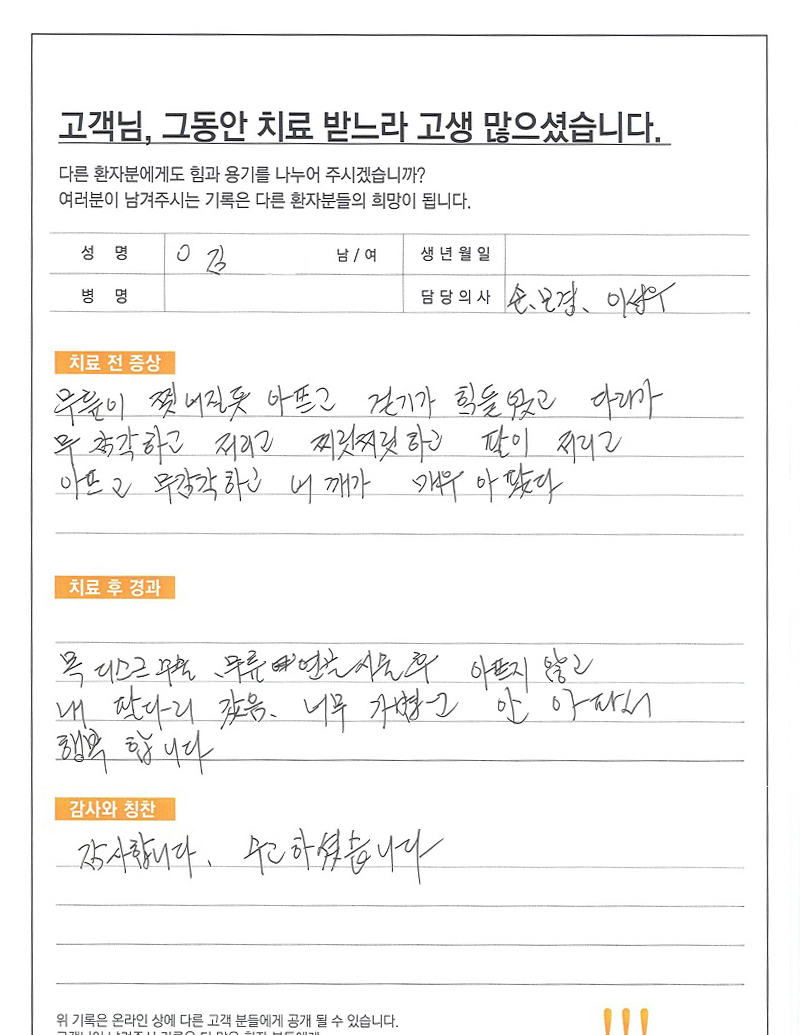 고객님, 그동안 치료 받느라 고생 많으셨습니다.
다른 환자분에게도 힘과 용기를 나누어 주시겠습니까?
여러분이 남겨주시는 기록은 다른 환자분들의 희망이 됩니다.
성 명 O 김 남/여 생년월일
병 명 담당의사 손보경, 이상우
치료 전 증상
무릎이 찢어질듯 아프고 걷기가 힘들었고 다리가
무감각하고 저리고 찌릿찌릿하고 팔이 저리고
아프고 무감각하고 어깨가 매우 아팠다
치료 후 경과
목 디스크 무릎 연골 시술 후 아프지 않고
내 팔다리 같음. 너무 가볍고 안 아파서
행복 합니다
감사와 칭찬
감사합니다. 수고하셨습니다
위 기록은 온라인 상에 다른 고객 분들에게 공개 될 수 있습니다.